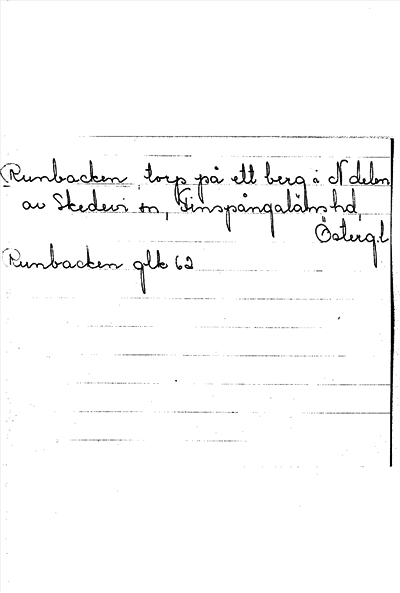 Runbacken, torp på ett berg i N delen
av Skedevi sn, Finspångaläns hd,
Östergl
Runbacken glk 62